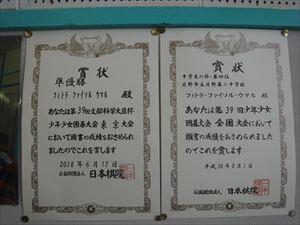 賞状
準優勝
フィトラ ファイソル ウマル 殿
あなたは第39回文部科学大臣杯
少年少女囲碁大会東京大会
において頭書の成績をおさめられ
ましたのでこれを賞します
2018年6月17日
公益財団法人 日本棋院
賞状
中学生の部：第四位
日野市立日野第二中学校
フィトラ・ファイソル・ウマル 殿
あなたは第39回少年少女
囲碁大会全国大会において
頭書の成績をおさめられました
のでこれを賞します
平成30年8月1日
公益財団法人 日本棋院